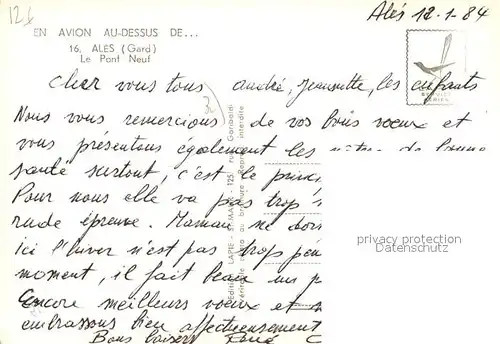 12
Alès 12-1-84
EN AVION AU-DESSUS DE...
16. ALES (Gard)
Le Pont Neuf
Cher vous tous andré, Jeannette, les enfants
Nous vous remercions de vos bons vœux et
vous présentons également les nôtres de bonne
santé surtout, c'est le princ
Pour nous elle va pas trop
rude épreuve. Maman ne dor
ici l'hiver n'est pas trop pén
moment, il fait beau un p
Encore meilleurs voeux et
embrassons bien affectueusement
Bons baisers René
Editions LAPIE - ST-MAUR - 125, rue Garibaldi
véritable au bromure Reproduction interdite
privacy protection
Datenschutz